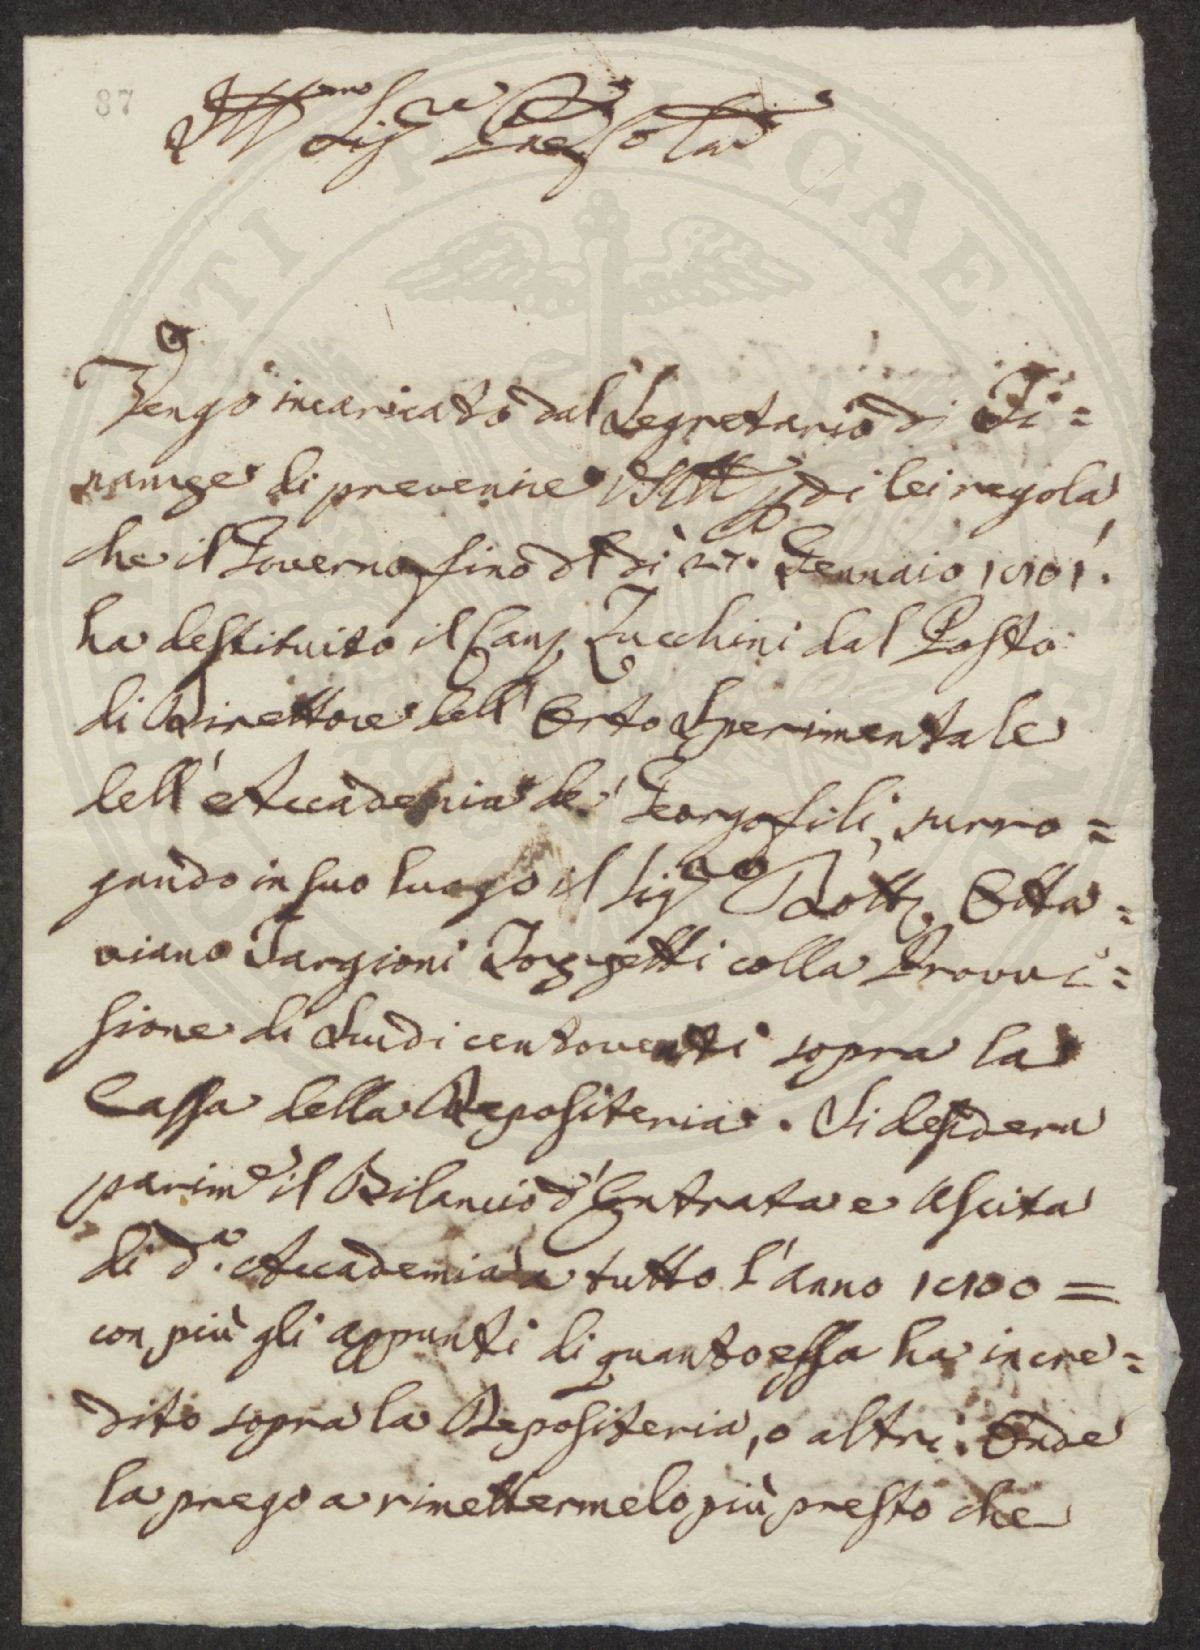 87
Ill.mo Sig.re Pne
Vengo incaricato dal Segretario di Fi=
nanze di prevenire VS Ill. p di lei regola
che il Governo fino dl dì 27. Gennaio 1801.
ha destituito il Can. Zucchini dal Posto
di Direttore dell' Orto Sperimentale
dell' Accademia de' Georgofili, surro=
gando in suo luogo il Sig.re Dott. Otta=
viano Targioni Tozzetti colla Provvi=
sione di Scudi centoventi sopra la
Cassa della Depositeria. Si desidera
parim.e il Bilancio d' Entrata e Uscita
di d.a Accademia a tutto l'anno 1800=
con più gli appunti di quanto essa ha in cre=
dito sopra la Depositeria, o altri. Onde
la prego a rimettermelo più presto che